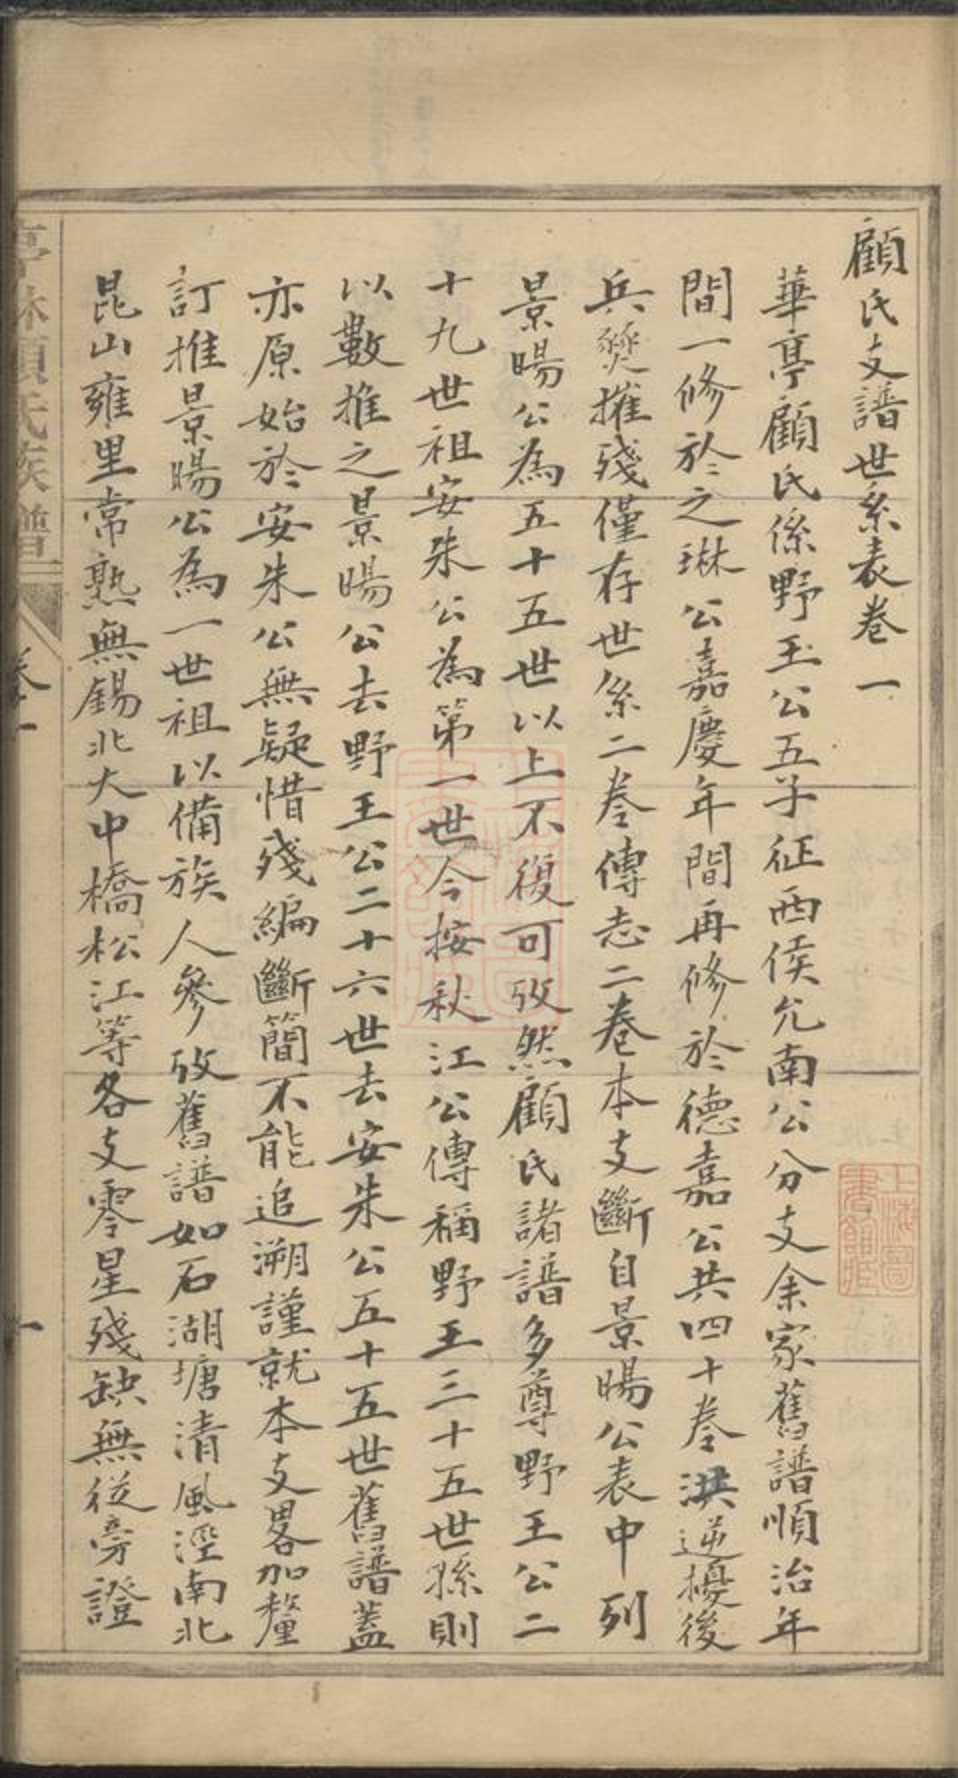 顧氏支譜世系表卷一
華亭顧氏係野王公五子征西侯允南公分支余家舊譜順治年
間一修於之琳公嘉慶年間再修於德嘉公共四十卷洪逆擾後
兵燹摧殘僅存世系二卷傳志二卷本支斷自景暘公表中列
景暘公為五十五世以上不復可攷然顧氏諸譜多尊野王公二
十九世祖安朱公為第一世今按秋江公傳稱野王三十五世孫則
以數推之景暘公去野王公二十六世去安朱公五十五世舊譜蓋
亦原始於安朱公無疑惜殘編斷簡不能追溯謹就本支畧加釐
訂推景暘公為一世祖以備族人參攷舊譜如石湖塘清風涇南北
昆山雍里常熟無錫北大中橋松江等各支零星殘缺無從旁證
亭林顧氏族譜
卷一
一
上海圖書館藏